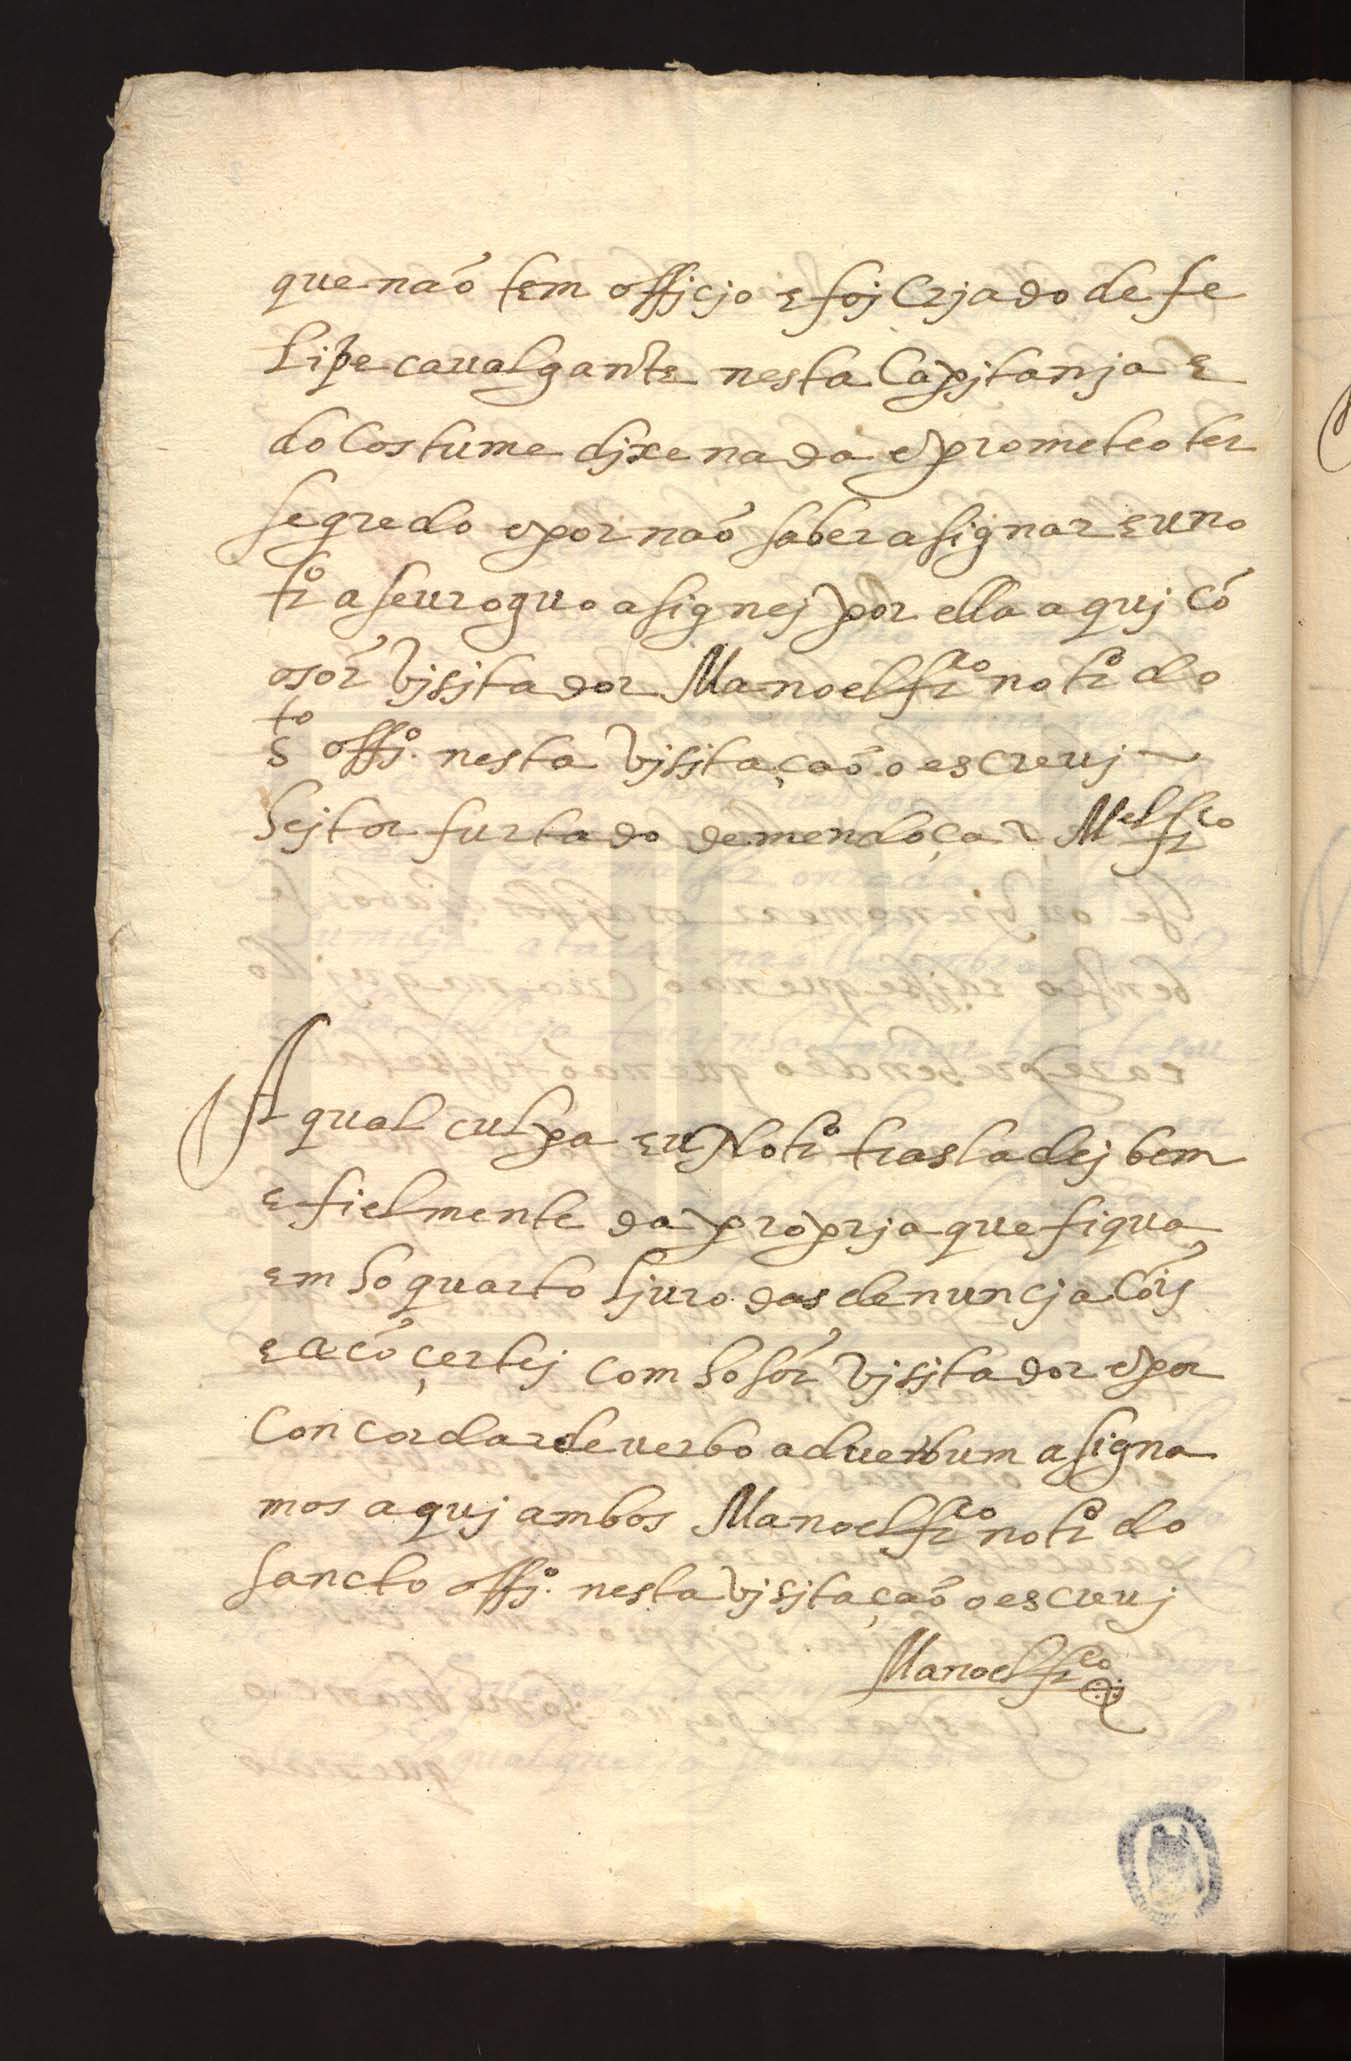 que não tem officjo e foj Crjado de fe
lipe caualgante nesta Capitanja e
do Costume dixe nada e prometeo ter
segredo e por não saber asignar eu no
tro a seu roguo asignej por ella aquj Cõ
o sor Vjsitador Manoel frco notro do
Sto offjo. nesta Vjsitação o escreuj
heitor furtado de mendoça Mel frco
A qual culpa eu Notro trasladej bem
e fielmente da proprja que fiqua
em ho quarto ljuro das denuncjacões
e a cõçertej com ho sor Vjsitador e por
Concordar de verbo ad uerbum asigna
mos aquj ambos Manoel frco notro do
sancto offjo. nesta Vjsitação o escreuj
Manoel frco